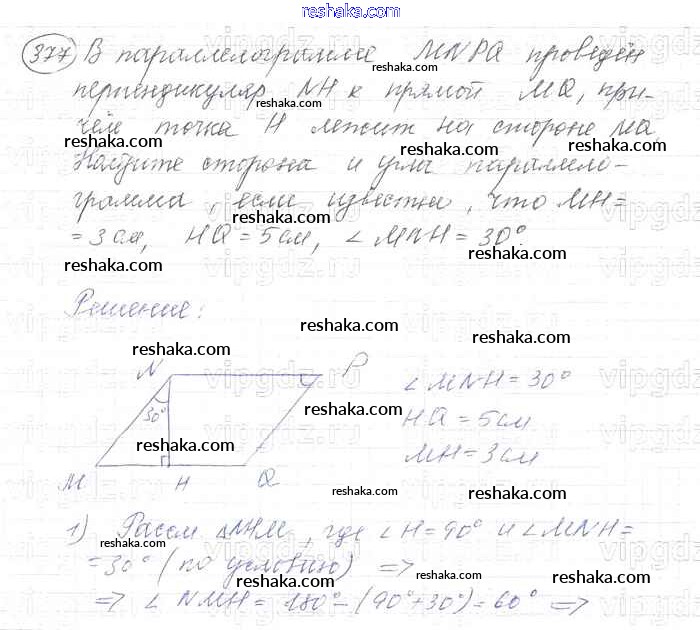 reshaka.com
377 В параллелограмме MNPQ проведён
reshaka.com
перпендикуляр NH к прямой MQ, при-
reshaka.com
чём точка H лежит на стороне MQ.
reshaka.com reshaka.com
Найдите стороны и углы параллело-
reshaka.com reshaka.com
грамма, если известно, что MH=
reshaka.com
= 3 см, HQ = 5 см, ∠MNH = 30°.
reshaka.com reshaka.com
Решение:
reshaka.com
reshaka.com
N P
∠MNH = 30°
30°
reshaka.com
HQ = 5 см
reshaka.com
MH = 3 см
M H Q
reshaka.com reshaka.com
1) Рассм △NHM, где ∠H = 90° и ∠MNH =
reshaka.com
= 30° (по условию) =>
reshaka.com reshaka.com
=> ∠NMH = 180° - (90° + 30°) = 60° =>
reshaka.com